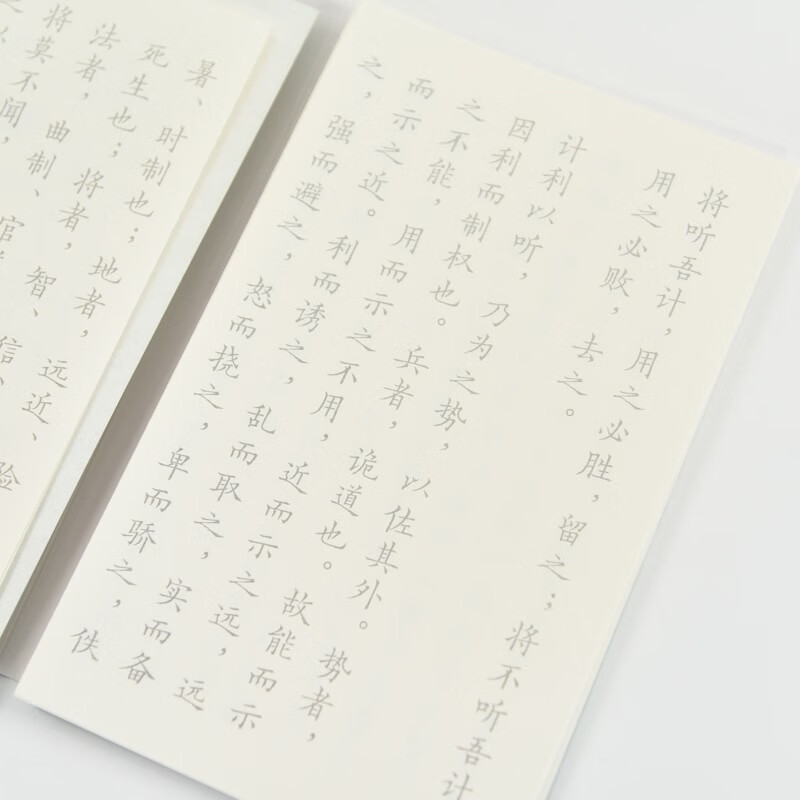 将听吾计，用之必胜，留之；将不听吾计
用之必败，去之。
计利以听，乃为之势，以佐其外。势者，
因利而制权也。兵者，诡道也。故能而示
之不能，用而示之不用，近而示之远，远
而示之近。利而诱之，乱而取之，实而备
之，强而避之，怒而挠之，卑而骄之，佚
暑、时制也；地者，远近、险
死生也；将者，智、信、
法者，曲制、官
将莫不闻，